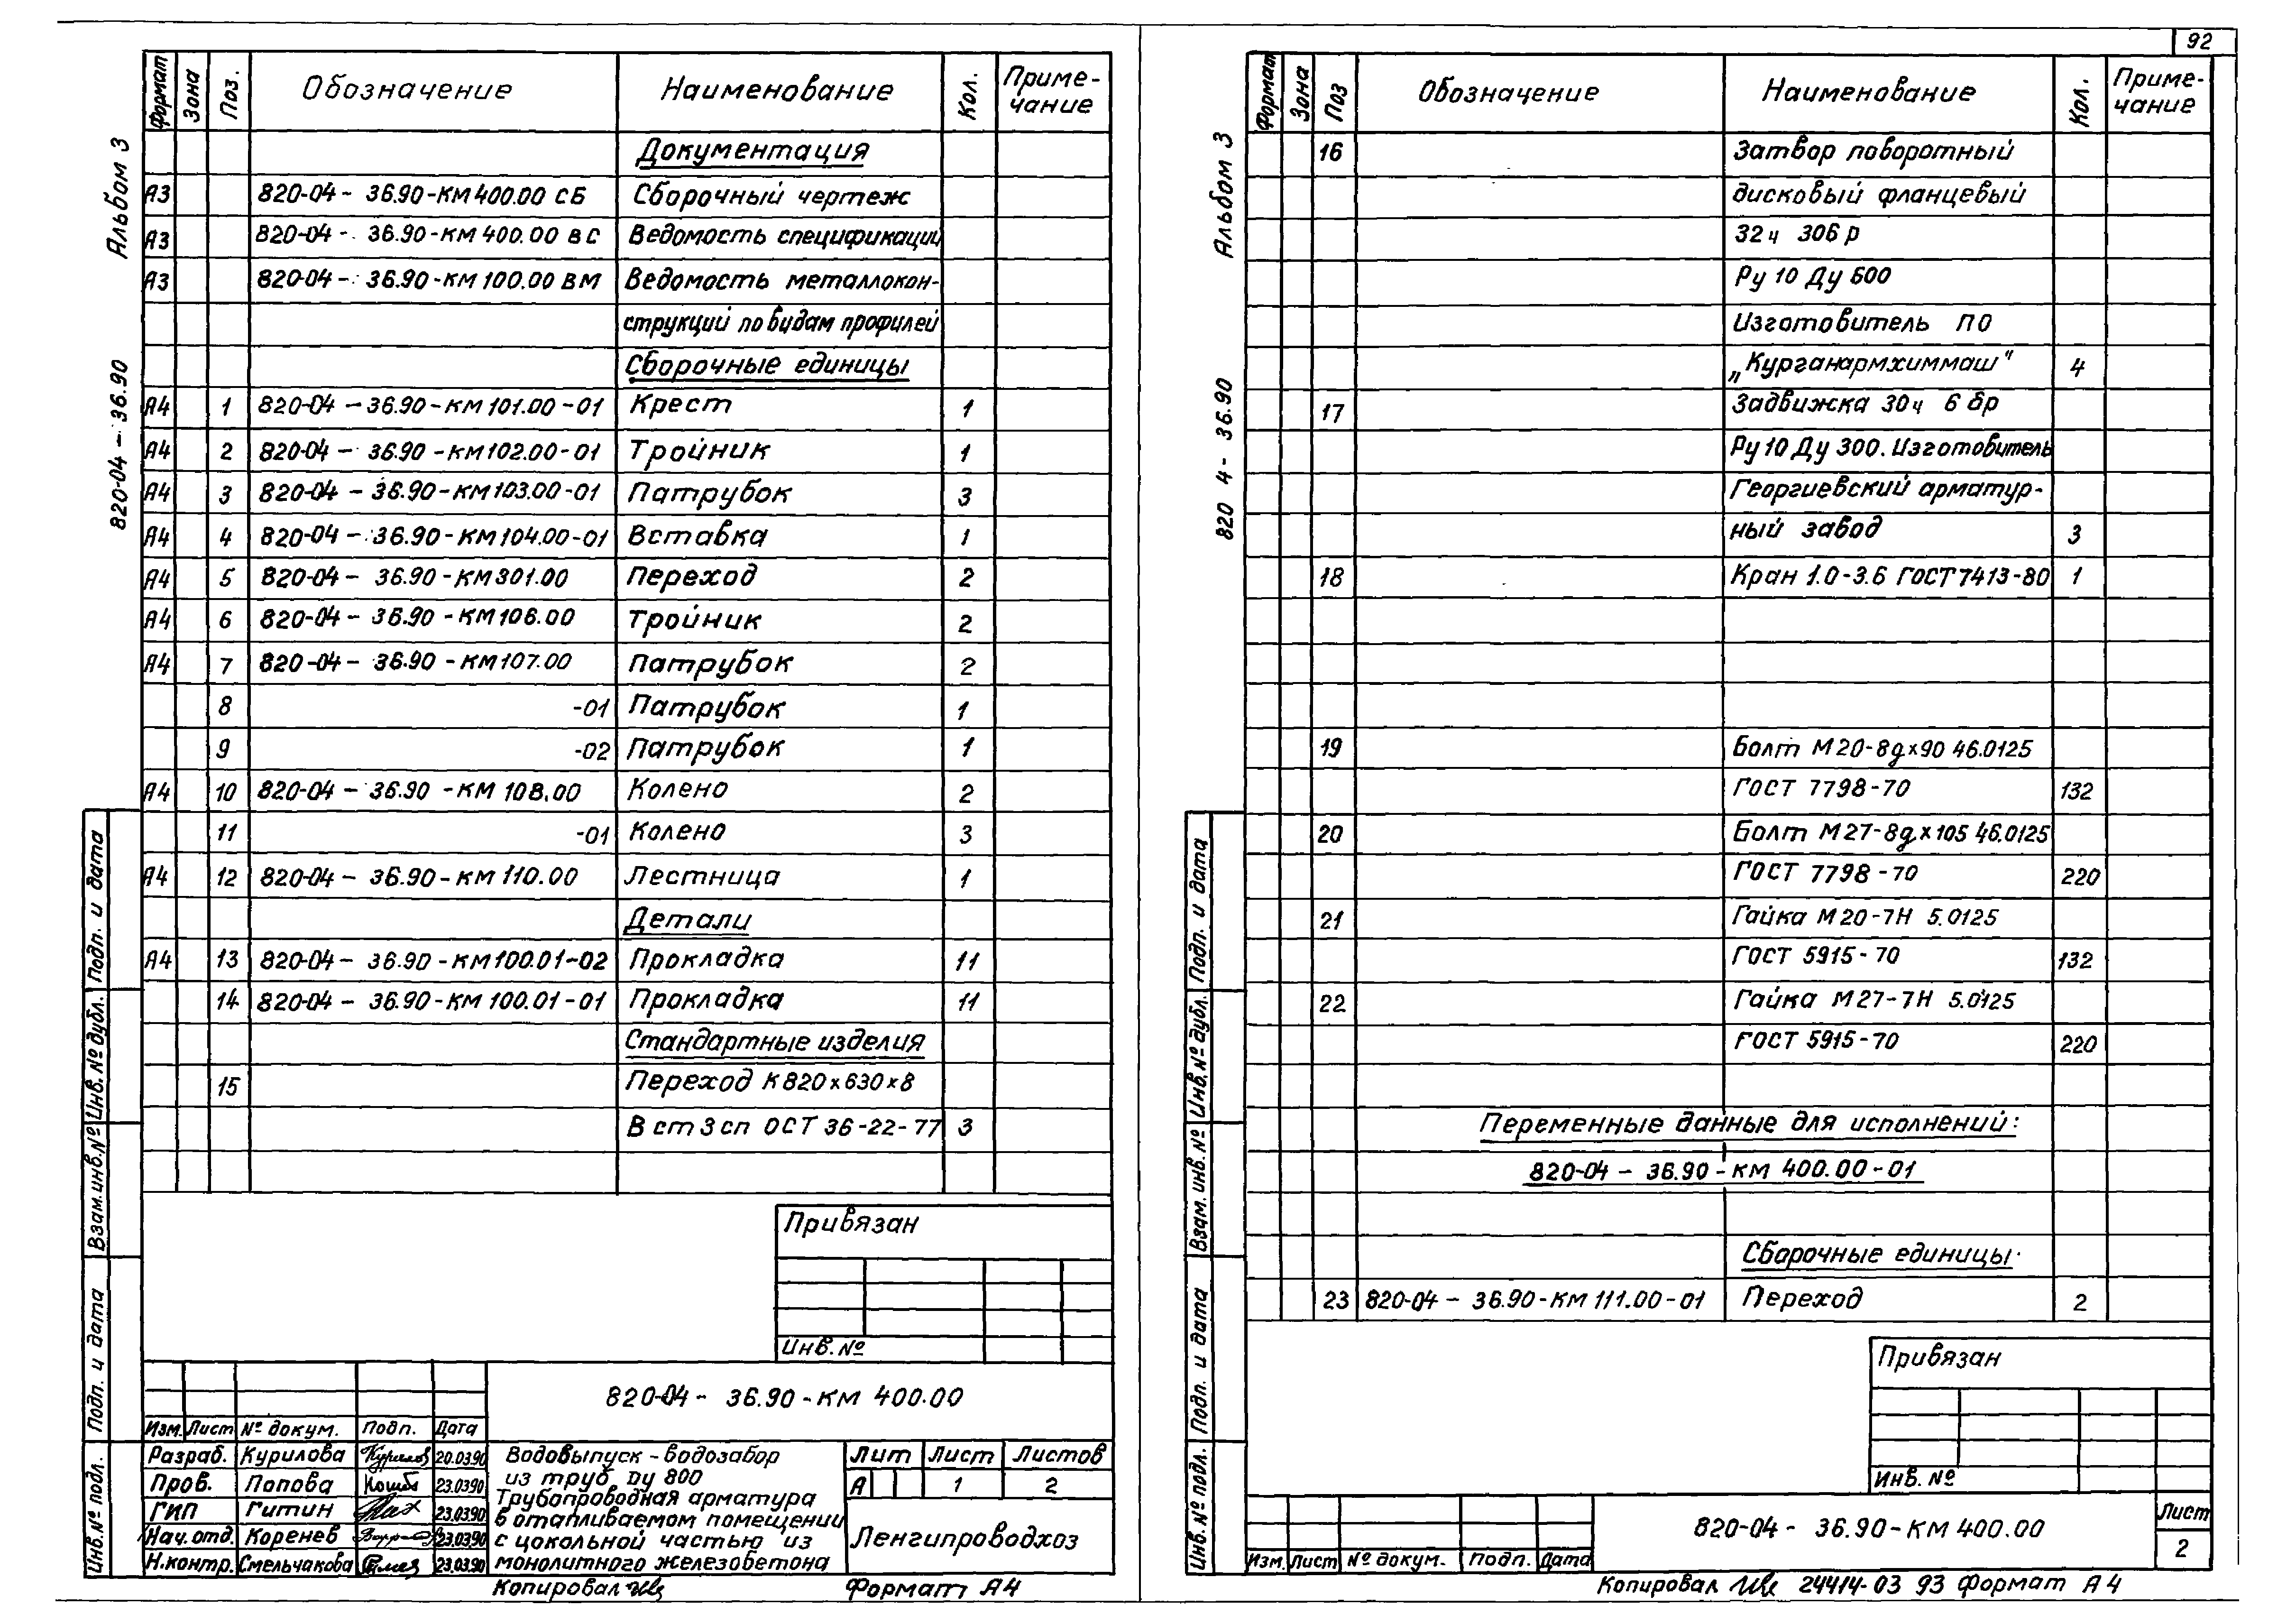 92
Альбом 3
820-04 - 36.90
Формат Зона Поз. Обозначение Наименование Кол. Приме-чание
Документация
А3 820-04 - 36.90-КМ 400.00 СБ Сборочный чертеж
А3 820-04 - 36.90-КМ 400.00 ВС Ведомость спецификаций
А3 820-04 - 36.90-КМ 100.00 ВМ Ведомость металлокон-
струкций по видам профилей
Сборочные единицы
А4 1 820-04 - 36.90-КМ 101.00-01 Крест 1
А4 2 820-04 - 36.90-КМ 102.00-01 Тройник 1
А4 3 820-04 - 36.90-КМ 103.00-01 Патрубок 3
А4 4 820-04 - 36.90-КМ 104.00-01 Вставка 1
А4 5 820-04 - 36.90-КМ 301.00 Переход 2
А4 6 820-04 - 36.90-КМ 106.00 Тройник 2
А4 7 820-04 - 36.90-КМ 107.00 Патрубок 2
8 -01 Патрубок 1
9 -02 Патрубок 1
А4 10 820-04 - 36.90-КМ 108.00 Колено 2
11 -01 Колено 3
А4 12 820-04 - 36.90-КМ 110.00 Лестница 1
Детали
А4 13 820-04 - 36.90-КМ 100.01-02 Прокладка 11
14 820-04 - 36.90-КМ 100.01-01 Прокладка 11
Стандартные изделия
15 Переход К 820х630х8
В ст 3 сп ОСТ 36-22-77 3
Привязан
Инв. №
820-04 - 36.90-КМ 400.00
Изм. Лист № докум. Подп. Дата
Разраб. Курилова 20.03.90
Пров. Попова 23.03.90
ГИП Гитин 23.03.90
Нач. отд. Коренев 23.03.90
Н.контр. Смельчакова 23.03.90
Водовыпуск - водозабор
из труб Ду 800
Трубопроводная арматура
в отапливаемом помещении
с цокольной частью из
монолитного железобетона
Лит Лист Листов
А 1 2
Ленгипроводхоз
Копировал
Формат А4
Инв. № подл. Подп. и дата Взам. инв. № Инв. № дубл. Подп. и дата
Альбом 3
820 4 - 36.90
Формат Зона Поз Обозначение Наименование Кол. Приме-чание
16 Затвор поворотный
дисковый фланцевый
32ч 306р
Ру 10 Ду 600
Изготовитель ПО
„Курганармхиммаш" 4
17 Задвижка 30ч 6 бр
Ру 10 Ду 300. Изготовитель
Георгиевский арматур-
ный завод 3
18 Кран 1.0-3.6 ГОСТ 7413-80 1
19 Болт М20-8gх90 46.0125
ГОСТ 7798-70 132
20 Болт М27-8gх105 46.0125
ГОСТ 7798-70 220
21 Гайка М20-7Н 5.0125
ГОСТ 5915-70 132
22 Гайка М27-7Н 5.0125
ГОСТ 5915-70 220
Переменные данные для исполнений:
820-04 - 36.90-КМ 400.00-01
Сборочные единицы
23 820-04 - 36.90-КМ 111.00-01 Переход 2
Привязан
Инв. №
Изм. Лист № докум. Подп. Дата
820-04 - 36.90-КМ 400.00
Лист
2
Копировал 24414-03 93 Формат А4
Инв. № подл. Подп. и дата Взам. инв. № Инв. № дубл. Подп. и дата